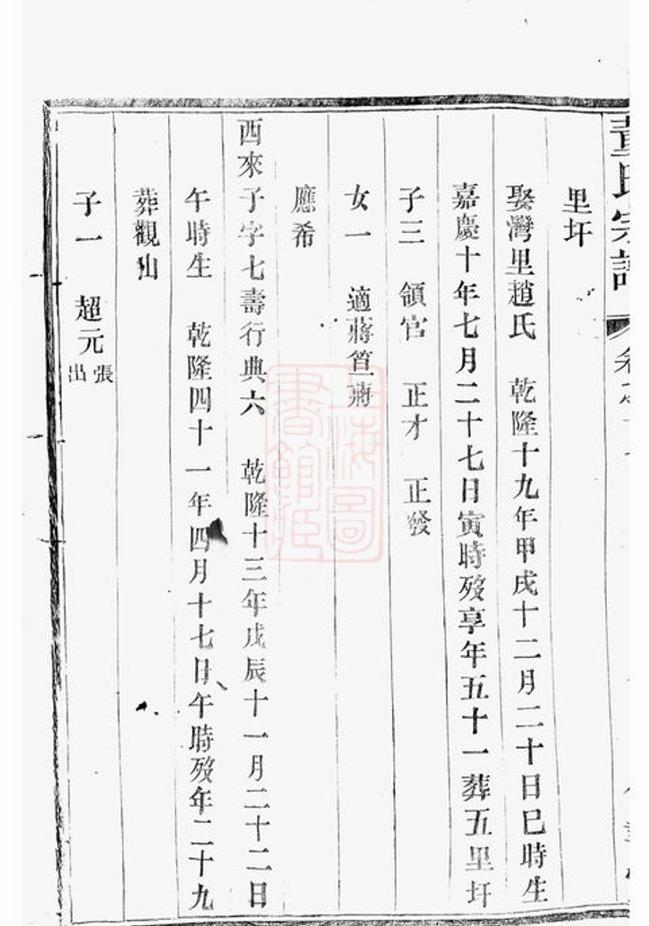 氏宗譜
里圩
娶灣里趙氏 乾隆十九年甲戌十二月二十日巳時生
嘉慶十年七月二十七日寅時歿享年五十一葬五里圩
子三 領官 正才 正發
女一 適蔣笪蔣
應希
酉來子字七壽行典六 乾隆十三年戊辰十一月二十二日
午時生 乾隆四十一年四月十七日午時歿年二十九
葬觀山
子一 超元張出
上海圖書館藏